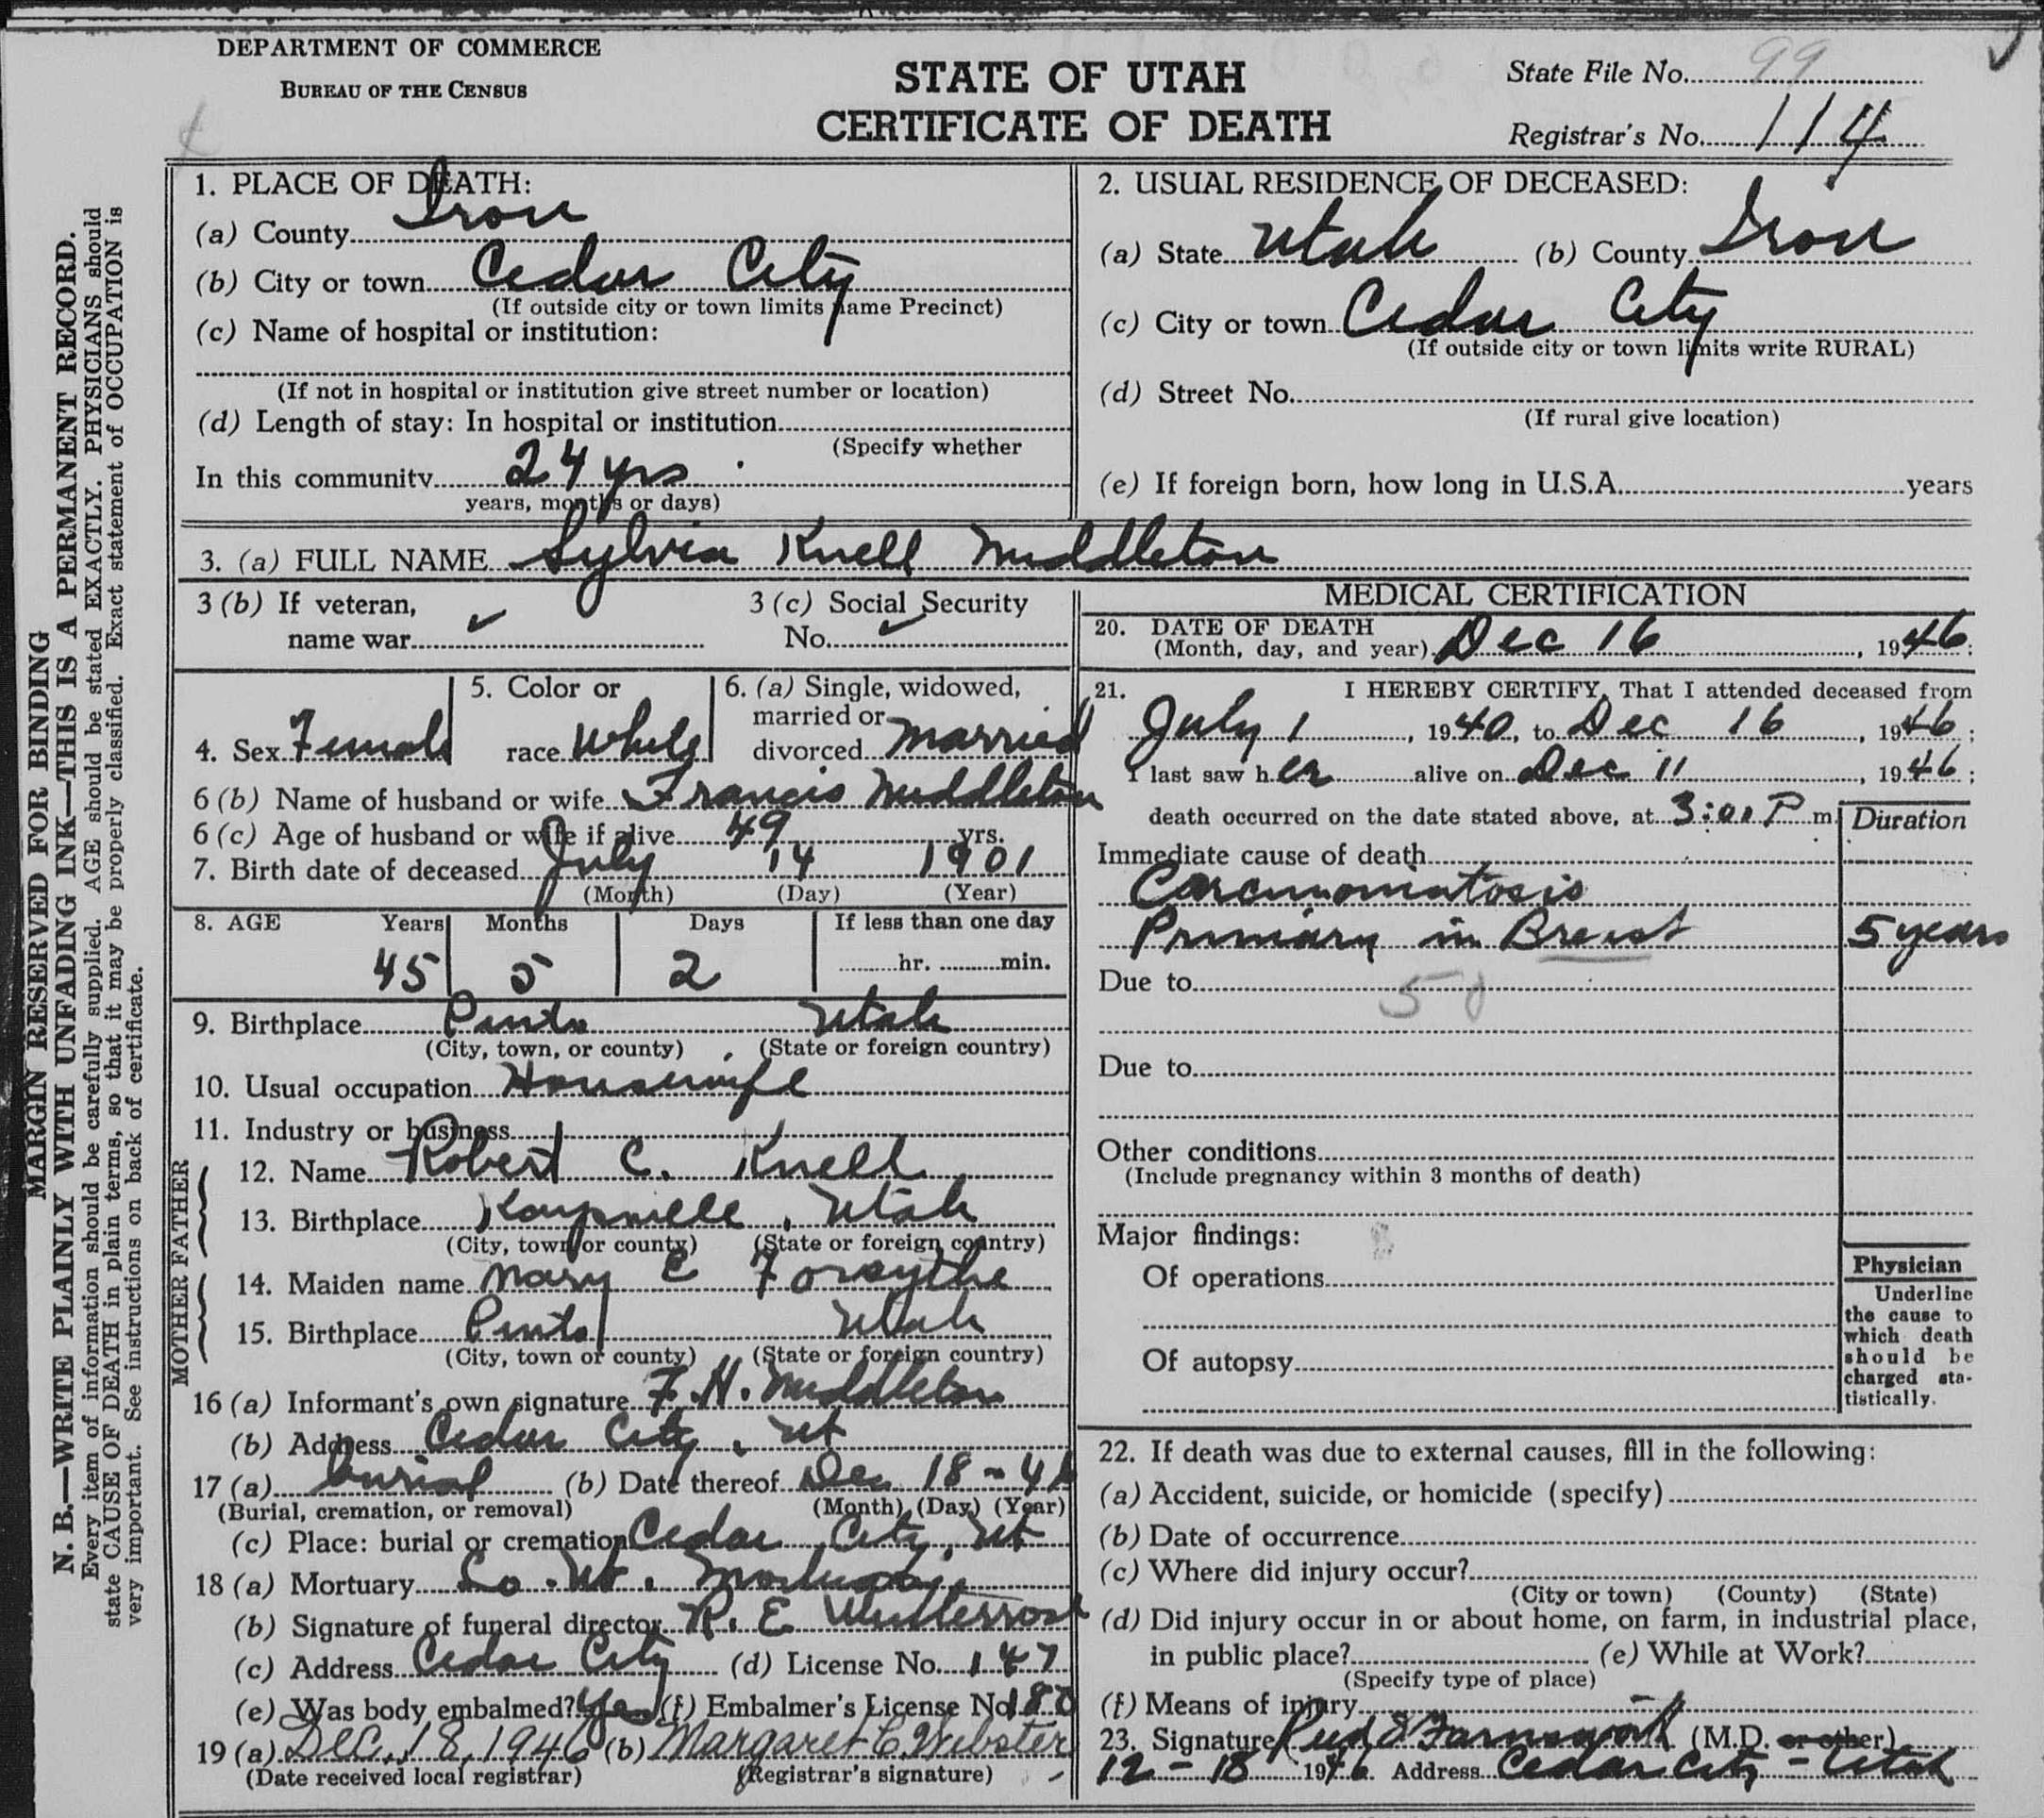 DEPARTMENT OF COMMERCE
BUREAU OF THE CENSUS
STATE OF UTAH
CERTIFICATE OF DEATH
State File No. 99
Registrar's No. 114
MARGIN RESERVED FOR BINDING
N. B.—WRITE PLAINLY WITH UNFADING INK—THIS IS A PERMANENT RECORD.
Every item of information should be carefully supplied. AGE should be stated EXACTLY. PHYSICIANS should
state CAUSE OF DEATH in plain terms, so that it may be properly classified. Exact statement of OCCUPATION is
very important. See instructions on back of certificate.
1. PLACE OF DEATH:
(a) County Iron
(b) City or town Cedar City
(If outside city or town limits name Precinct)
(c) Name of hospital or institution:
(If not in hospital or institution give street number or location)
(d) Length of stay: In hospital or institution
(Specify whether
In this community 24 yrs
years, months or days)
2. USUAL RESIDENCE OF DECEASED:
(a) State Utah (b) County Iron
(c) City or town Cedar City
(If outside city or town limits write RURAL)
(d) Street No.
(If rural give location)
(e) If foreign born, how long in U.S.A. years
3. (a) FULL NAME Sylvia Knell Middleton
3 (b) If veteran,
name war ✓
3 (c) Social Security
No. ✓
4. Sex Female
5. Color or
race White
6. (a) Single, widowed,
married or
divorced Married
6 (b) Name of husband or wife Francis Middleton
6 (c) Age of husband or wife if alive 49 yrs.
7. Birth date of deceased July 14 1901
(Month) (Day) (Year)
8. AGE Years Months Days If less than one day
45 5 2 hr. min.
9. Birthplace Pinto Utah
(City, town, or county) (State or foreign country)
10. Usual occupation Housewife
11. Industry or business
FATHER
12. Name Robert C. Knell
13. Birthplace Utah
(City, town or county) (State or foreign country)
MOTHER
14. Maiden name Mary E Forsythe
15. Birthplace Pinto Utah
(City, town or county) (State or foreign country)
16 (a) Informant's own signature F. H. Middleton
(b) Address Cedar City, Ut
17 (a) burial (b) Date thereof Dec 18-46
(Burial, cremation, or removal) (Month) (Day) (Year)
(c) Place: burial or cremation Cedar City, Ut
18 (a) Mortuary So. Ut. Mortuary
(b) Signature of funeral director R. E.
(c) Address Cedar City (d) License No. 147
(e) Was body embalmed? Yes (f) Embalmer's License No. 180
19 (a) Dec. 18, 1946 (b) Margaret C. Webster
(Date received local registrar) (Registrar's signature)
MEDICAL CERTIFICATION
20. DATE OF DEATH
(Month, day, and year) Dec 16, 1946;
21. I HEREBY CERTIFY, That I attended deceased from
July 1, 1940, to Dec 16, 1946;
I last saw her alive on Dec 11, 1946;
death occurred on the date stated above, at 3:00 P m. Duration
Immediate cause of death
Carcinomatosis
Primary in Breast 5 years
Due to 50
Due to
Other conditions
(Include pregnancy within 3 months of death)
Major findings:
Of operations
Of autopsy
Physician
Underline
the cause to
which death
should be
charged sta-
tistically.
22. If death was due to external causes, fill in the following:
(a) Accident, suicide, or homicide (specify)
(b) Date of occurrence
(c) Where did injury occur?
(City or town) (County) (State)
(d) Did injury occur in or about home, on farm, in industrial place,
in public place? (e) While at Work?
(Specify type of place)
(f) Means of injury
23. Signature Farnsworth (M.D. or other)
12-18 1946 Address Cedar City - Utah